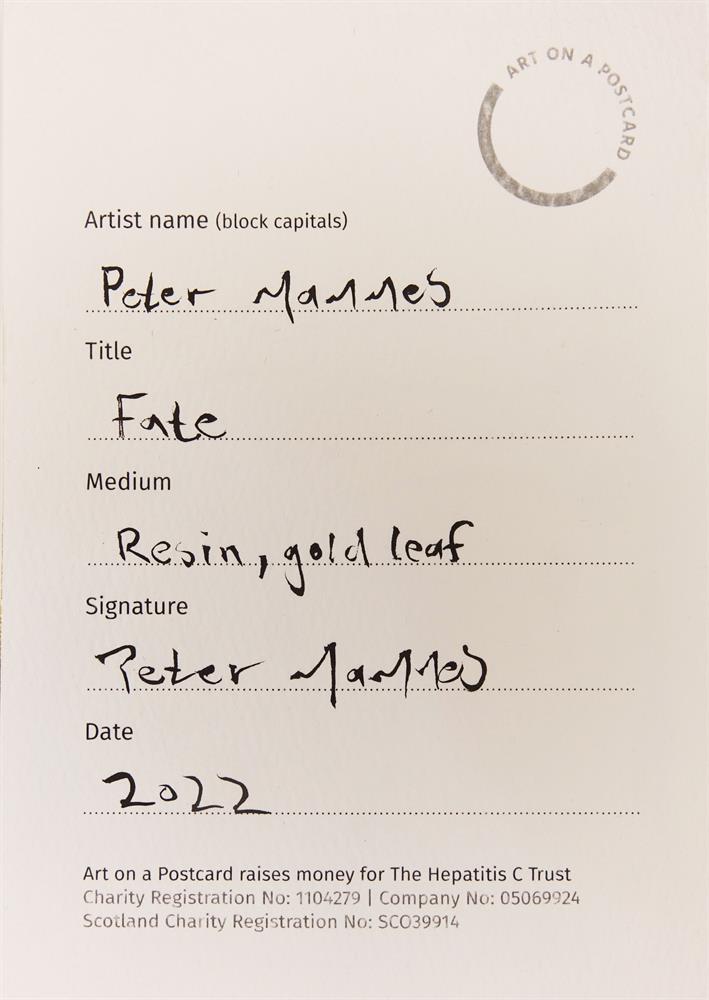 ART ON A POSTCARD
Artist name (block capitals)
Peter Mammes
Title
Fate
Medium
Resin, gold leaf
Signature
Peter Mammes
Date
2022
Art on a Postcard raises money for The Hepatitis C Trust
Charity Registration No: 1104279 | Company No: 05069924
Scotland Charity Registration No: SCO39914